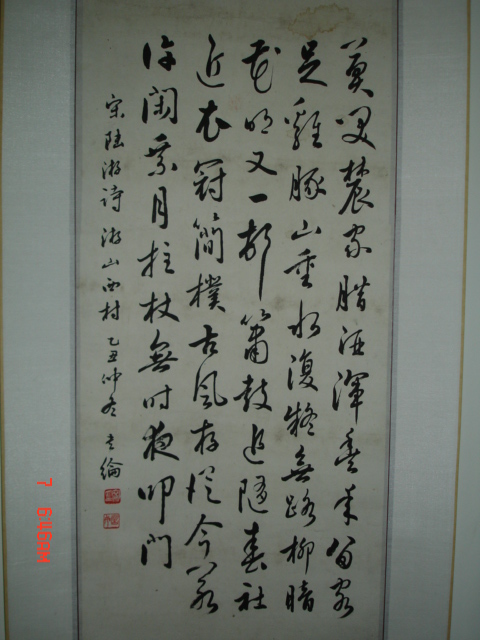 莫笑農家臘酒渾豐年留客
足雞豚山重水復疑無路柳暗
花明又一邨簫鼓追隨春社
近衣冠簡樸古風存從今若
許閑乘月拄杖無時夜叩門
宋陸游詩 游山西村 乙丑仲冬 綸
7 6:46AM